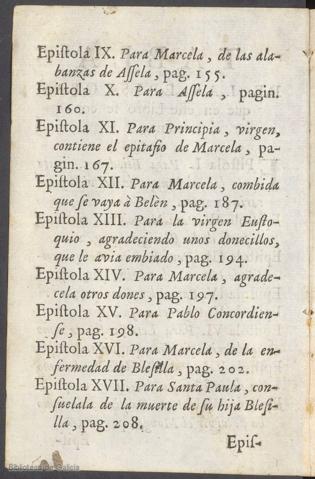 Epiſtola IX. Para Marcela, de las ala-
banzas de Aſſela, pag. 155.
Epiſtola X. Para Aſſela, pagin.
160.
Epiſtola XI. Para Principia, virgen,
contiene el epitafio de Marcela, pa-
gin. 167.
Epiſtola XII. Para Marcela, combida
que ſe vaya à Belèn, pag. 187.
Epiſtola XIII. Para la virgen Euſto-
quio, agradeciendo unos donecillos,
que le avia embiado, pag. 194.
Epiſtola XIV. Para Marcela, agrade-
cela otros dones, pag. 197.
Epiſtola XV. Para Pablo Concordien-
ſe, pag. 198.
Epiſtola XVI. Para Marcela, de la en-
fermedad de Bleſilla, pag. 202.
Epiſtola XVII. Para Santa Paula, con-
ſuelala de la muerte de ſu hija Bleſi-
lla, pag. 208.
Epiſ-
Biblioteca de Galicia